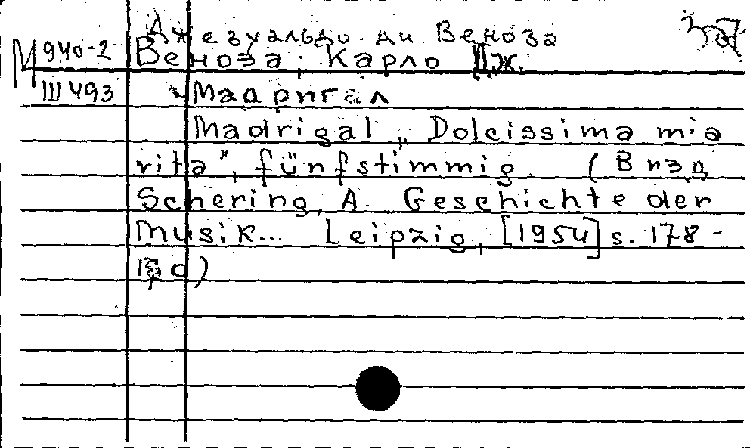 Джезуальдо ди Веноза
М 940-2 Веноза, Карло Дж.
III 493 Мадригал
Madrigal „Dolcissima mia
vita", fünfstimmig. (В изд.
Schering, A. Geschichte der
Musik... Leipzig, [1954] s. 178-